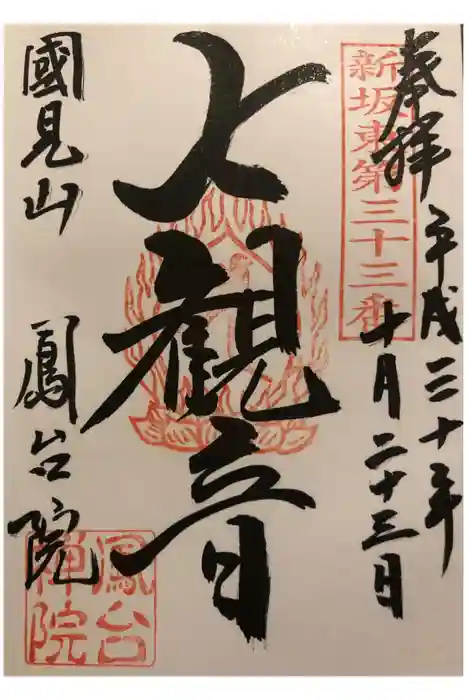 奉拝
新坂東第三十三番
平成三十年
十月二十三日
大観音
國見山 鳳台院
鳳台禅院